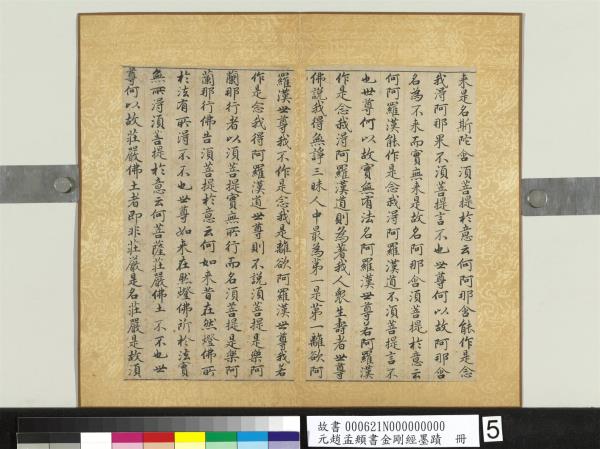 来是名斯陀含須菩提於意云何阿那含能作是念
我得阿那含果不須菩提言不也世尊何以故阿那含
名為不来而實無来是故名阿那含須菩提於意云
何阿羅漢能作是念我得阿羅漢道不須菩提言不
也世尊何以故實無有法名阿羅漢世尊若阿羅漢
作是念我得阿羅漢道則為著我人衆生壽者世尊
佛說我得無諍三昧人中最為第一是第一離欲阿
羅漢世尊我不作是念我是離欲阿羅漢世尊我若
作是念我得阿羅漢道世尊則不說須菩提是樂阿
蘭那行者以須菩提實無所行而名須菩提是樂阿
蘭那行佛告須菩提於意云何如来昔在然燈佛所
於法有所得不不也世尊如来在然燈佛所於法實
無所得須菩提於意云何菩薩莊嚴佛土不不也世
尊何以故莊嚴佛土者即非莊嚴是名莊嚴是故須
故書 000621N000000000
元趙孟頫書金剛經墨蹟 冊
5